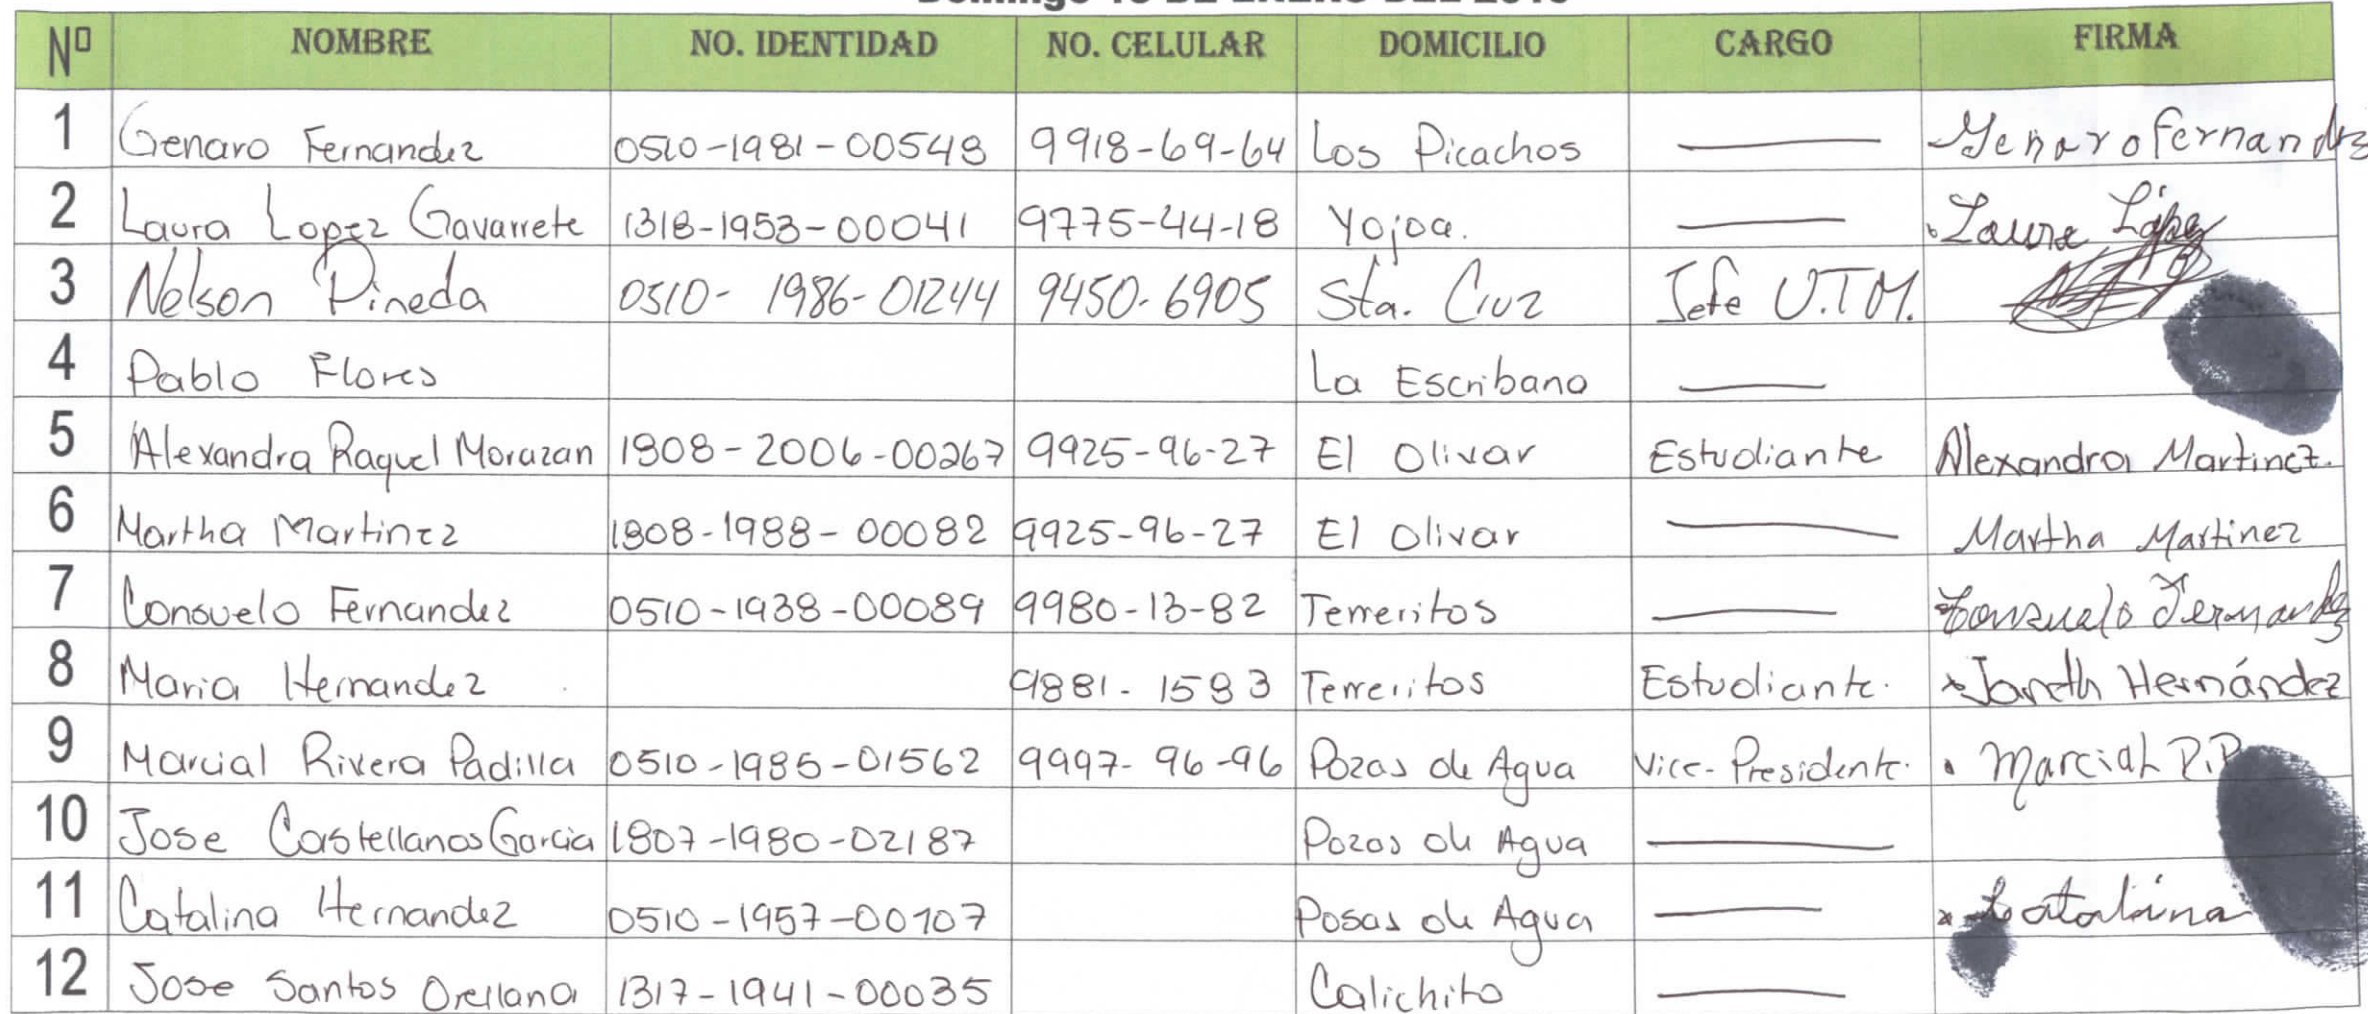 Nº NOMBRE NO. IDENTIDAD NO. CELULAR DOMICILIO CARGO FIRMA
1 Genaro Fernandez 0510-1981-00548 9918-69-64 Los Picachos Genaro fernandez
2 Laura Lopez Gavarrete 1318-1953-00041 9775-44-18 Yojoa. Laura López
3 Nelson Pineda 0510- 1986-01244 9450-6905 Sta. Cruz Jefe U.T.M.
4 Pablo Flores La Escribano
5 Alexandra Raquel Morazan 1808-2006-00267 9925-96-27 El Olivar Estudiante Alexandra Martinez.
6 Martha Martinez 1808-1988-00082 9925-96-27 El Olivar Martha Martinez
7 Consuelo Fernandez 0510-1938-00089 9980-13-82 Terreritos Consuelo Fernandez
8 Maria Hernandez 9881-1583 Terreritos Estudiante. Janeth Hernández
9 Marcial Rivera Padilla 0510-1985-01562 9997-96-96 Pozas de Agua Vice-Presidente. Marcial
10 Jose Castellanos Garcia 1807-1980-02187 Pozas de Agua
11 Catalina Hernandez 0510-1957-00107 Posas de Agua Catalina
12 Jose Santos Orellana 1317-1941-00035 Calichito